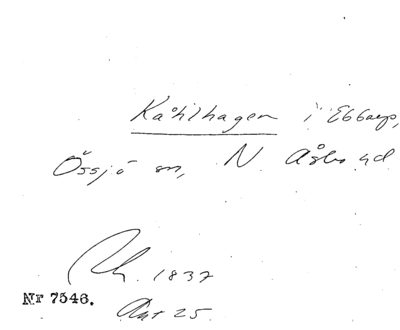 Kåhlhagen i Ebbarp,
Össjö sn, N. Åsbo hd
Rh. 1837
Nr 7546.
Akt 25